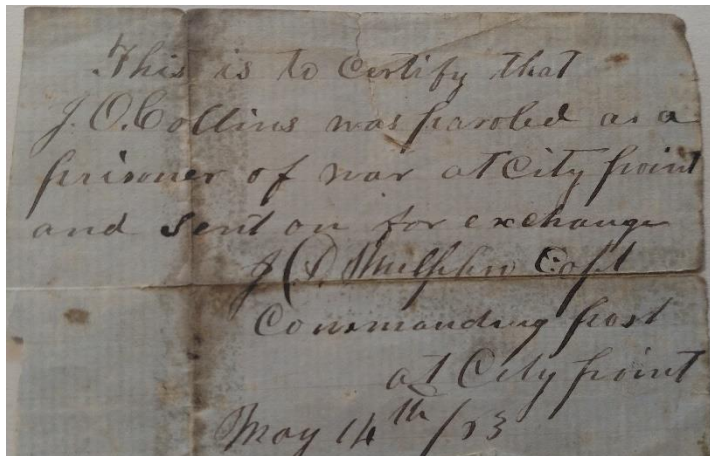 This is to Certify that
J. O. Collins was paroled as a
prisoner of war at City point
and sent on for exchange
Capt
Commanding post
at City point
May 14th /63